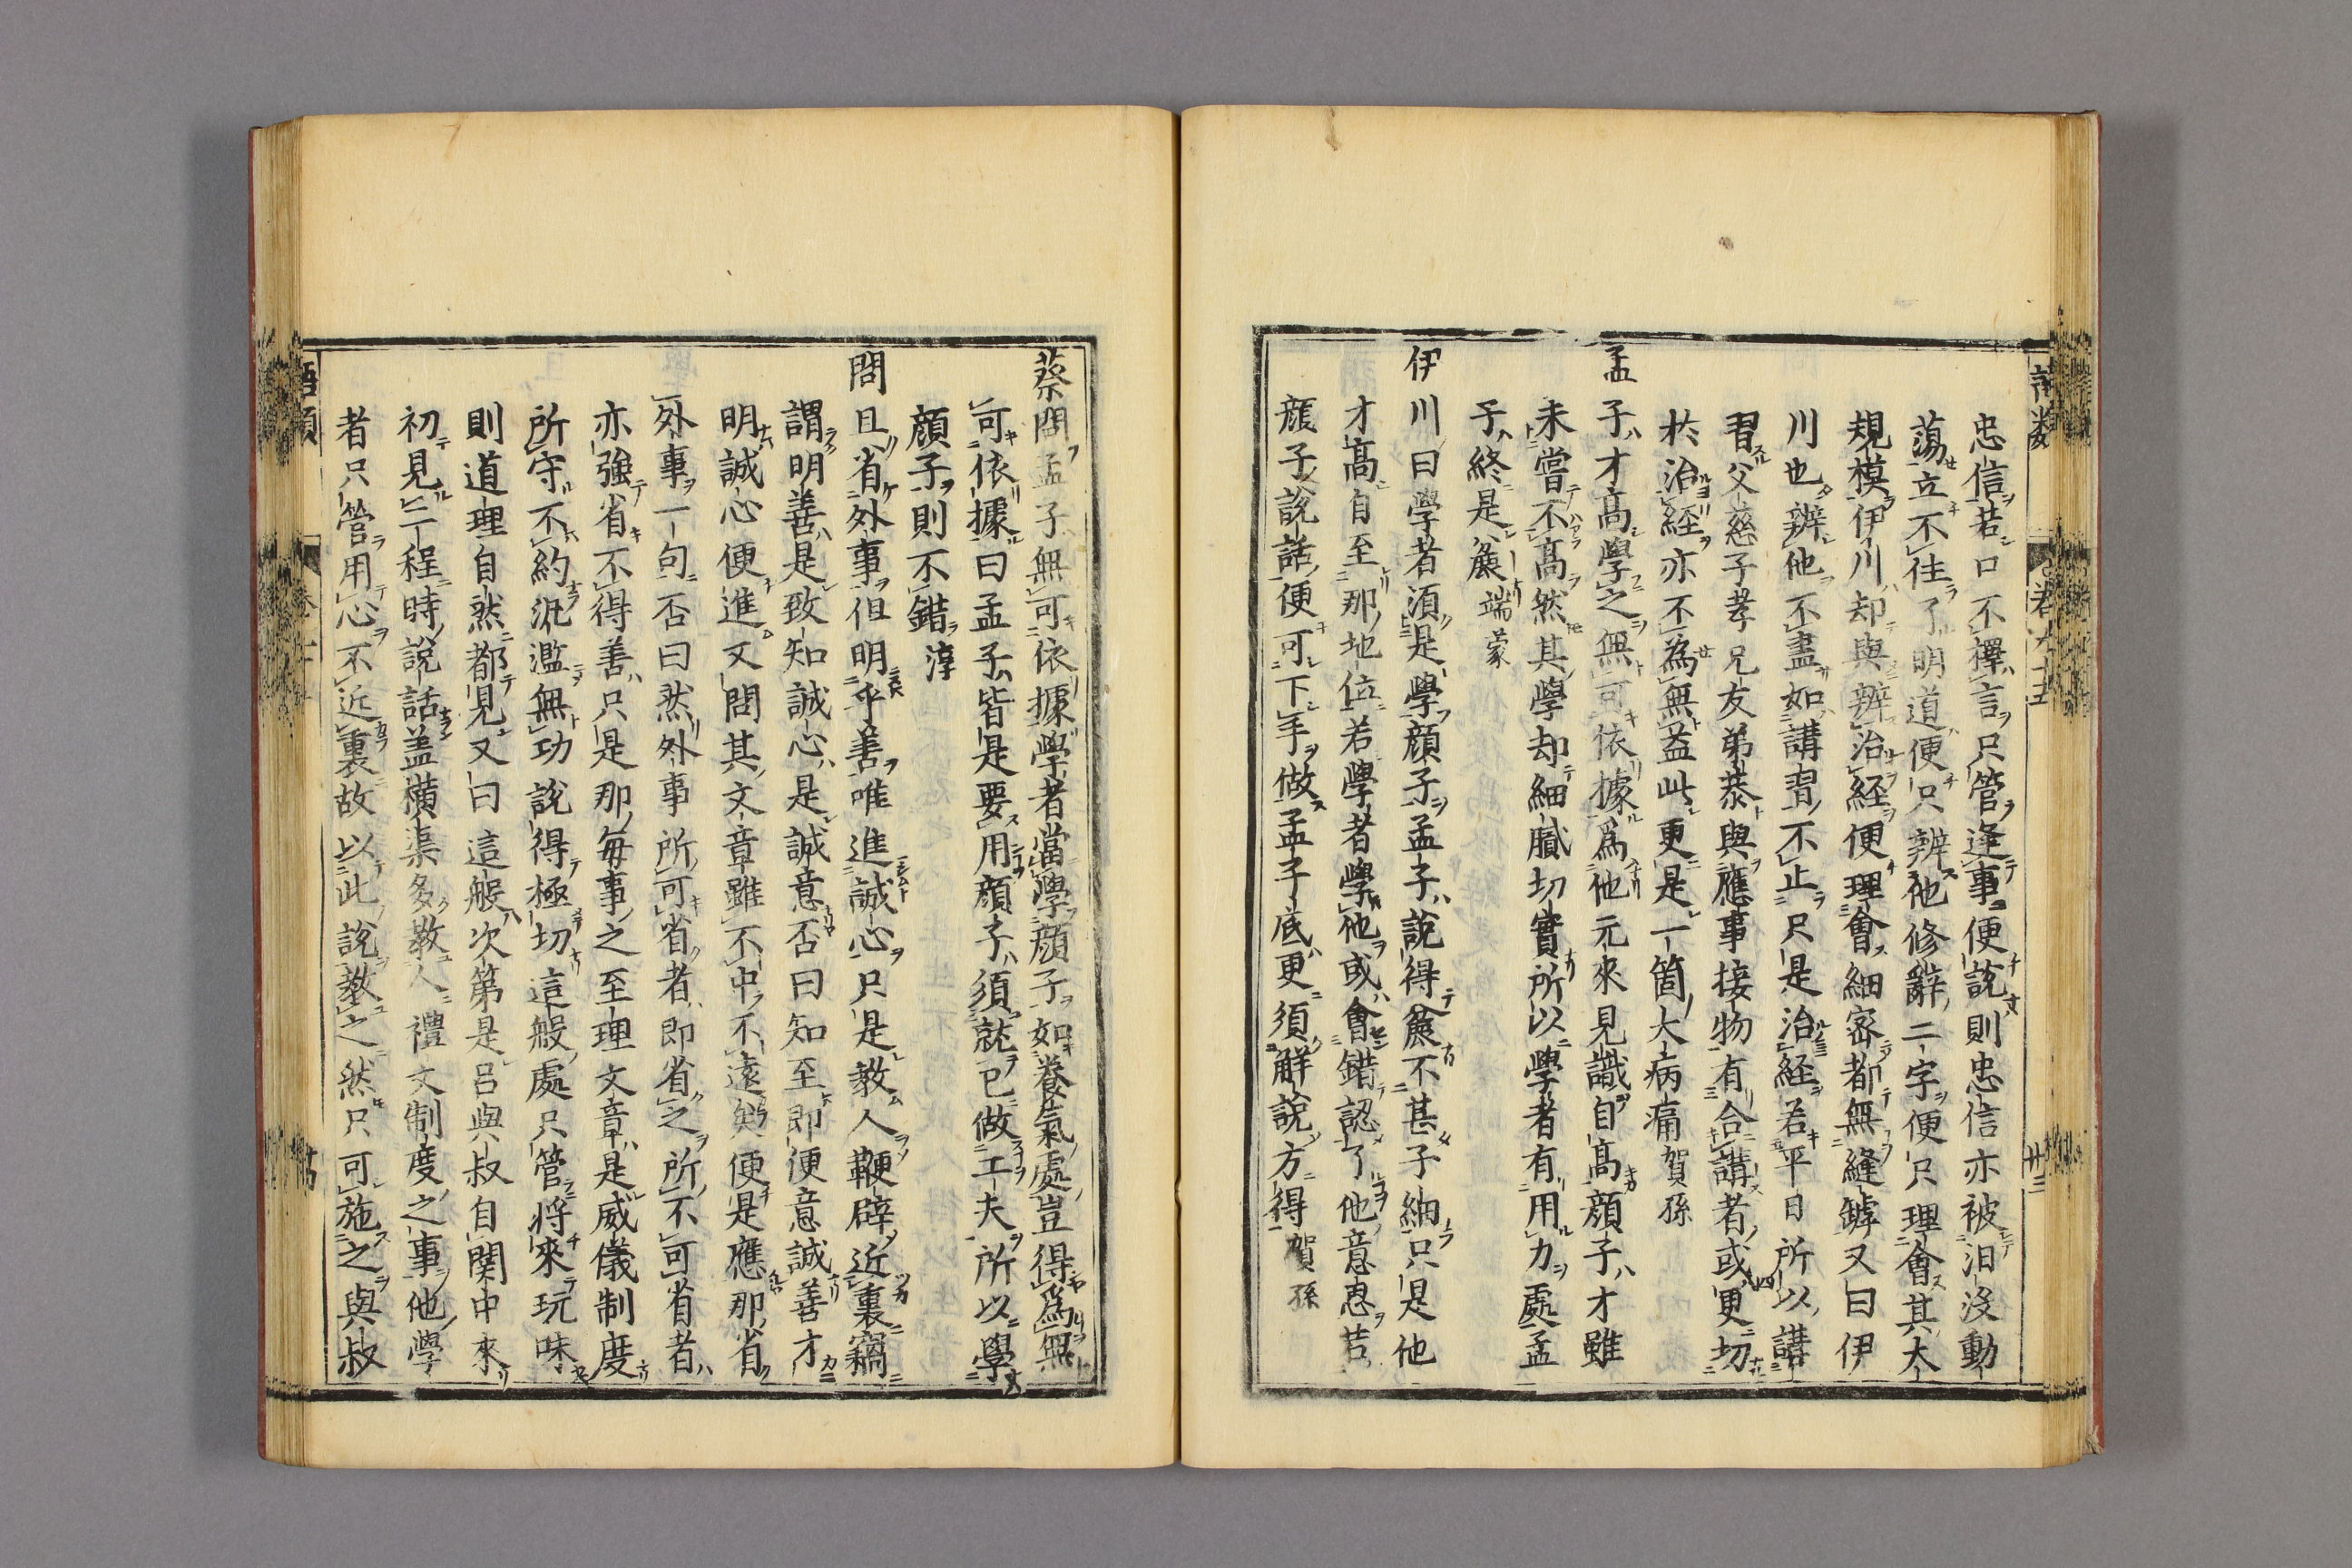 忠信若口不擇言只管逢事便說則忠信亦被汩沒動
蕩立不住了明道便只辨他修辭二字便只理會其大
規模伊川却與辨治經便理會細密都無縫罅又曰伊
川也辨他不盡如講習不止只是治經若平日所以講
習父慈子孝兄友弟恭與應事接物有合講者或更切
於治經亦不為無益此更是一箇大病痛賀孫
孟子才高學之無可依據為他元來見識自高顏子才雖
未嘗不高然其學却細膩切實所以學者有用力處孟
子終是麄端蒙
伊川曰學者須是學顏子孟子說得麄不甚子細只是他
才高自至那地位若學者學他或會錯認了他意思若
顏子說話便可下手做孟子底更須解說方得賀孫
蔡問孟子無可依據學者當學顏子如養氣處豈得為無
可依據曰孟子皆是要用顏子須就己做工夫所以學
顏子則不錯淳
問且省外事但明乎善唯進誠心只是教人鞭辟近裏竊
謂明善是致知誠心是誠意否曰知至即便意誠善才
明誠心便進又問其文章雖不中不遠矣便是應那省
外事一句否曰然外事所可省者即省之所不可省者
亦強省不得善只是那每事之至理文章是威儀制度
所守不約汎濫無功說得極切這般處只管將來玩味
則道理自然都見又曰這般次第是呂與叔自關中來
初見二程時說話蓋橫渠多教人禮文制度之事他學
者只管用心不近裏故以此說教之然只可施之與叔